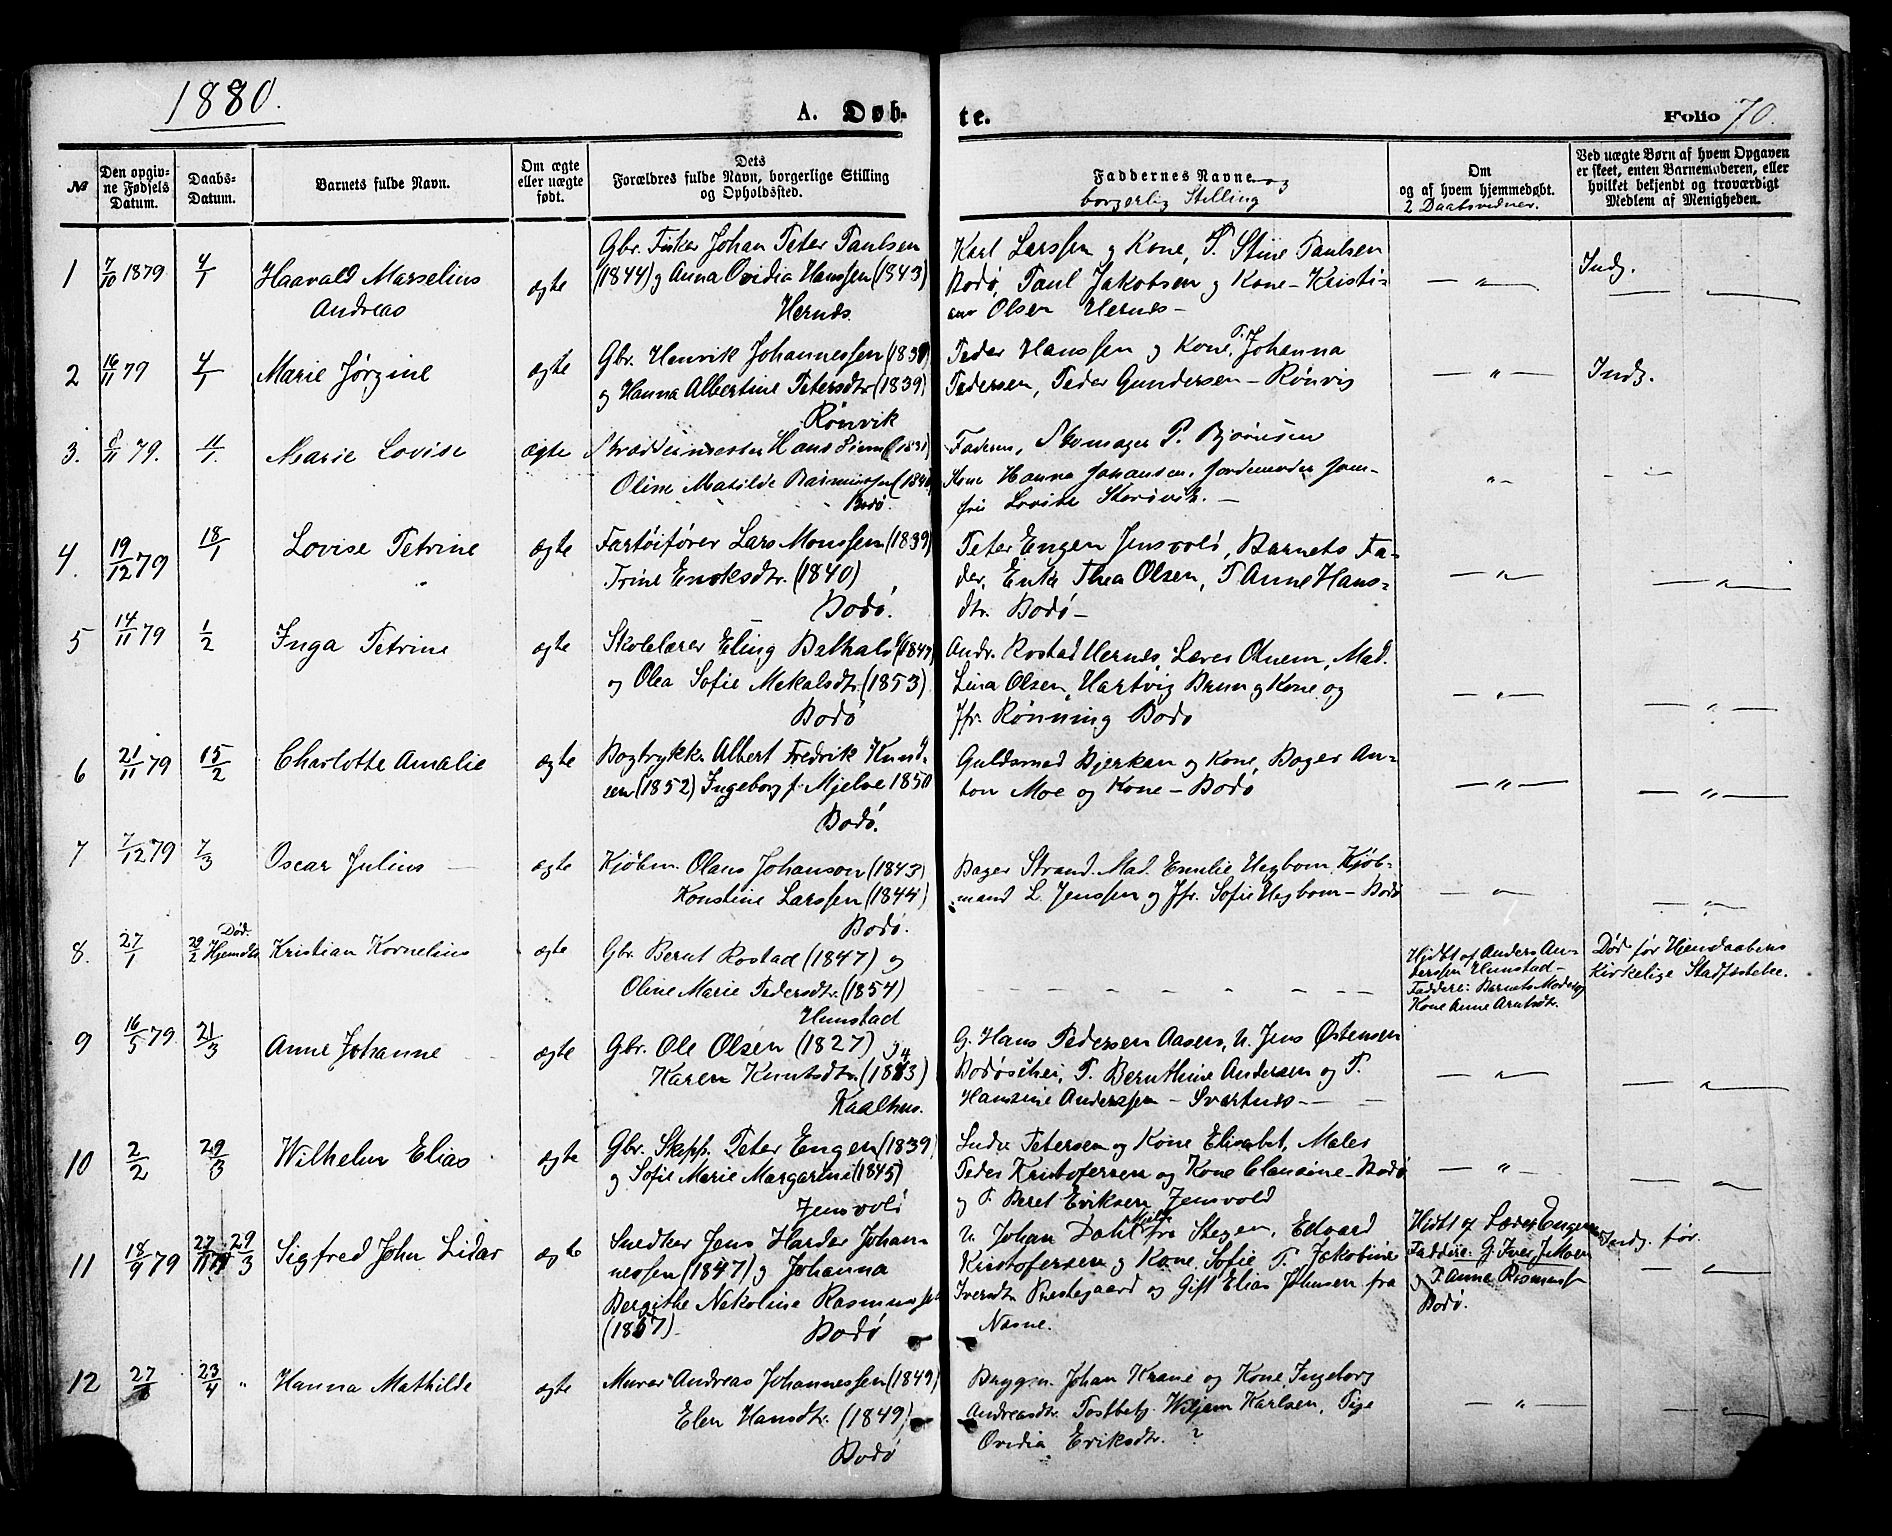 1880.
A. Døbte.
Folio 70.
№
Den opgivne Fødsels Datum.
Daabs-Datum.
Barnets fulde Navn.
Om ægte eller uægte født.
Dets Forældres fulde Navn, borgerlige Stilling og Opholdssted.
Faddernes Navne og borgerlig Stilling
Om og af hvem hjemmedøbt. 2 Daabsvidner.
Ved uægte Børn af hvem Opgaven er skeet, enten Barnemoderen, eller hvilket bekjendt og troværdigt Medlem af Menigheden.
1 7/10 1879 4/1 Haavald Marselius ægte Gbr. Fisker Johan Peter Paulsen
Andreas (1844) og Anna Ovidia Hanssen (1843)
Hernes.
Karl Larssen og Kone, P. Stine Paulsen
Bodø, Paul Jakobsen og Kone – Kristi-
ane Olsen Hernes –
— " — Indg.
2 16/11 79 4/1 Marie Jørgine ægte Gbr. Henrik Johannessen
og Hanna Albertine Petersdtr (1839)
Rønvik
Peder Hanssen og Kone, P. Johanna
Pedersen, Peder Gundersen – Rønvig
— " — Indg.
3. 8/11 79. 11/1. Marie Lovise ægte Skræddermester Hans
Oline Matilde
Bodø.
Faderen, Skomager P. Bjørnsen
Kone Hanna Johansen, Jordemoder Jom-
fru Lovise
4. 19/12 79 18/1 Lovise Petrine ægte Fartøifører Lars Monssen (1839)
Trine Enoksdtr. (1840)
Bodø.
Peter Engen Jensvold, Barnets Fa-
der, Enke Thea Olsen, P. Anne Hans-
dtr. Bodø –
5 14/11 79 1/2 Inga Petrine ægte Skolelærer Eling
og Olea Sofie Mekalsdtr. (1853)
Bodø
Andr. Rostad Hernes, Mad.
Lina Olsen, Hartvig Brun og Kone og
Jfr. Rønning Bodø
6 21/11 79 15/2 Charlotte Amalie ægte Bogtrykk. Albert Fredrik Knud-
sen (1852) Ingeborg f. Mjelve 1850
Bodø.
Guldsmed Bjerkan og Kone, Bager An-
ton Moe og Kone – Bodø
7 7/12 79 7/3 Oscar Julius ægte Kjøbm. Olaus Johanson (1843)
Konstine Larssen (1844)
Bodø.
Bager Strand. Mad. Emilie Hegbom, Kjøb-
mand L. Jenssen og Jfr. Sofie Hegbom – Bodø
8. 27/1 29/2 Død. Hjemdbt. Kristian Kornelius ægte Gbr. Bernt Rostad (1847) og
Oline Marie Pedersdtr. (1854)
Hunstad
Hjdbt af Anders An-
derssen Hunstad –
Faddere: Barnets Moder og
Kone Anne Arntsdtr.
Død før Hjemdaabens
Kirkelige Stadfæstelse.
9 16/5 79. 21/3 Anne Johanne ægte Gbr. Ole Olsen (1827) og
Karen Knutsdtr. (1843)
Kaalhus.
G. Hans Pedersen Aasen, U. Jens Østensen
P. Bernthine Andersen og P.
Hansine Anderssen – Svartnes –
10 2/2 29/3 Wilhelm Elias ægte Gbr. Skipp. Peter Engen (1839)
og Sofie Marie Margarine (1845)
Jensvold
Petersen og Kone Elisabet, Maler
Peder Kristofersen og Kone Clausine – Bodø
og P. Beret Eriksen Jensvold
11 18/9 79 29/3 Sigfred John Lidar ægte Snedker Jens Harder Johan-
nessen (1847) og Johanna
Bergithe Nekoline Rasmussen
(1857) Bodø
U. Johan Dahl fra Stegen, Edvard
Kristofersen og Kone, Sofie P. Jakobine
Iversdtr. Prestegaard og Gift Elias Johnsen fra
Næsne.
Hjdbt af Lærer Engen
Faddere: G. Iver J. Moen
og P. Anne
Bodø.
Indg. før.
12 23/4 Hanna Mathilde ægte Murer Andreas Johannessen (1849)
Elen Hansdtr. (1849)
Bodø
Johan Krane og Kone Ingeborg
Andreasdtr. Postbetj. Wiljem Karlsen, Pige
Ovidia Eriksdtr. ?